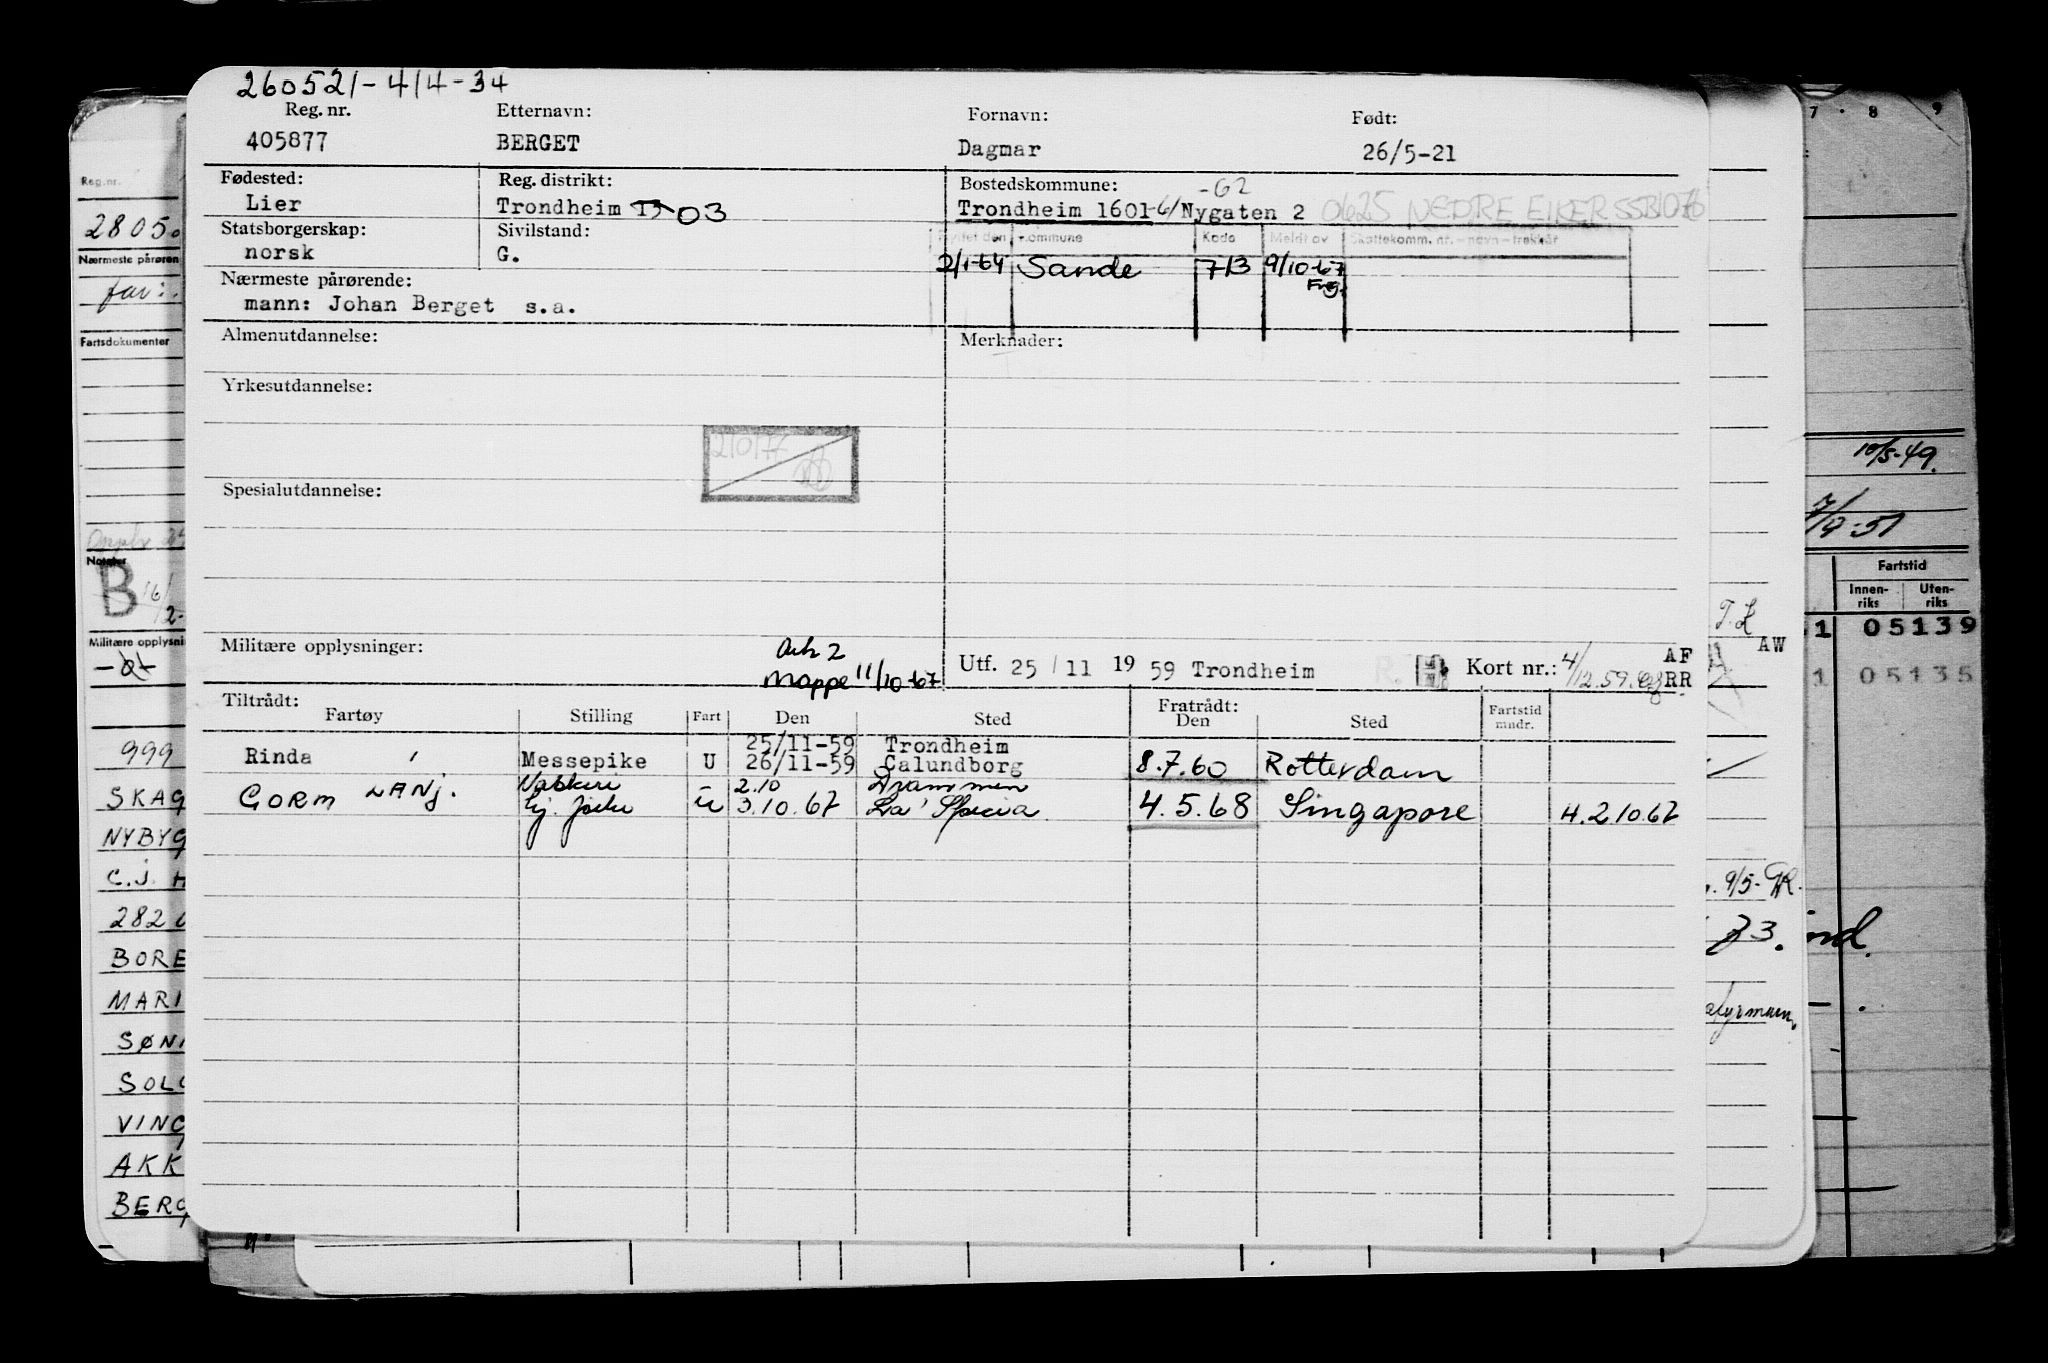 260521-414-34
Reg. nr. Etternavn: Fornavn: Født:
405877 BERGET Dagmar 26/5-21
Fødested: Reg. distrikt: Bostedskommune: -62
Lier Trondheim 03 Trondheim 1601-61 Nygaten 2 0625 NEDRE EIKER SSB1076
Statsborgerskap: Sivilstand: Flyttet den Kommune Kode Meldt av Skattekomm. nr. - navn - trekkår
norsk G. 2/1-64 Sande 713 9/10-67
Frg.
Nærmeste pårørende:
mann: Johan Berget s.a.
Almenutdannelse: Merknader:
Yrkesutdannelse:
Spesialutdannelse:
Militære opplysninger: Ark 2
Mappe 11/10-67
Utf. 25/11 1959 Trondheim Kort nr.: 4/12.59. AF
RR
Tiltrådt: Fratrådt:
Fartøy Stilling Fart Den Sted Den Sted Fartstid mndr.
25/11-59 Trondheim
Rinda Messepike U 26/11-59 Calundborg 8.7.60 Rotterdam
2.10 Drammen
GORM LANJ. U 3.10.67 La Spezia 4.5.68 Singapore H.2/10.67
Reg.nr.
2805
Nærmeste pårøren
far:
Fartsdokumenter
Notater
B
Militære opplysni
999
SKAG
NYBYG
C.J. H
282
BORE
MARI
SØN
SOLO
VING
AKK
BERG
7 8 9
10/5-49.
7/9-51
Fartstid
Innen-riks Uten-riks
1 05139
1 05135
T.L
AW
9/5- GR.
73.